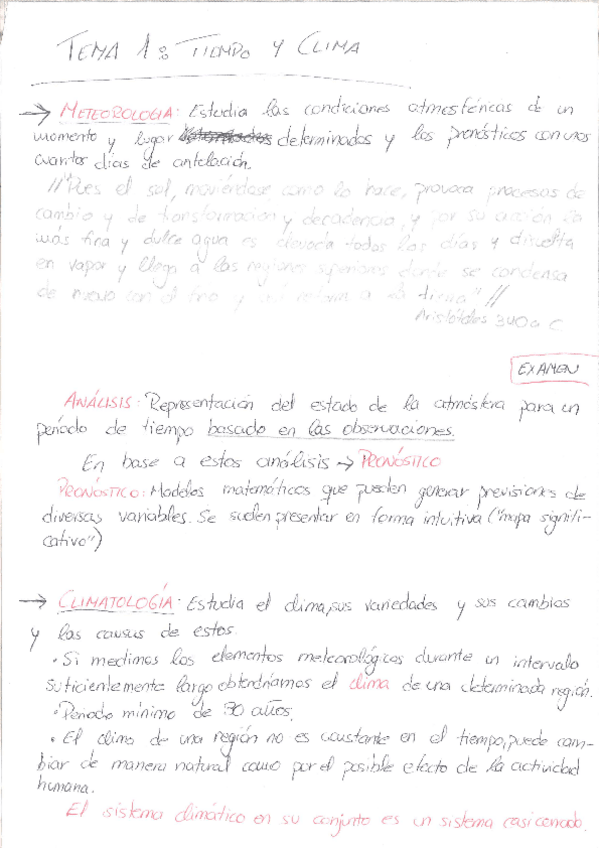 TEMA 1: TIEMPO Y CLIMA
→ METEOROLOGIA: Estudia las condiciones atmosféricas de un
momento y lugar determinados y los pronósticos con unos
cuantos días de antelación.
//"Pues el sol, moviéndose como lo hace, provoca procesos de
cambio y de transformación y decadencia, y por su acción la
más fina y dulce agua es elevada todos los días y disuelta
en vapor y llega a las regiones superiores donde se condensa
de nuevo con el frío y así retorna a la tierra"//
Aristóteles 340 a C
EXAMEN
ANÁLISIS: Representación del estado de la atmósfera para un
período de tiempo basado en las observaciones.
En base a estos análisis → PRONÓSTICO
PRONÓSTICO: Modelos matemáticos que pueden generar previsiones de
diversas variables. Se suelen presentar en forma intuitiva ("mapa signifi-
cativo")
→ CLIMATOLOGÍA: Estudia el clima, sus variedades y sus cambios
y las causas de estos.
· Si medimos los elementos meteorológicos durante un intervalo
suficientemente largo obtendríamos el clima de una determinada región.
· Periodo mínimo de 30 años.
· El clima de una región no es constante en el tiempo, puede cam-
biar de manera natural como por el posible efecto de la actividad
humana.
El sistema climático en su conjunto es un sistema casi cerrado.